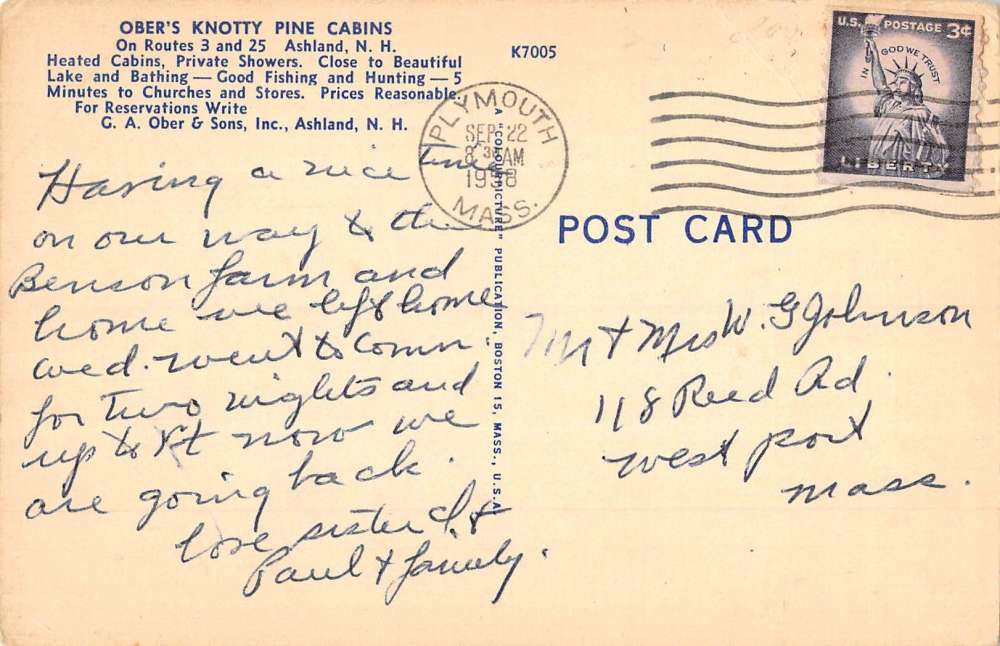 OBER'S KNOTTY PINE CABINS
On Routes 3 and 25 Ashland, N. H.
Heated Cabins, Private Showers. Close to Beautiful
Lake and Bathing — Good Fishing and Hunting — 5
Minutes to Churches and Stores. Prices Reasonable.
For Reservations Write
G. A. Ober & Sons, Inc., Ashland, N. H.
K7005
U.S. POSTAGE 3¢
IN GOD WE TRUST
LIBERTY
PLYMOUTH
SEP 22
8 30 AM
1958
MASS.
A "COLOURPICTURE" PUBLICATION, BOSTON 15, MASS., U.S.A.
POST CARD
Having a nice time
on our way to the
Benson farm and
home we left home
wed. went to Conn
for two nights and
up to Vt now we
are going back.
love sister &
Paul + family.
Mr + Mrs W. G Johnson
118 Reed Rd.
west port
mass.